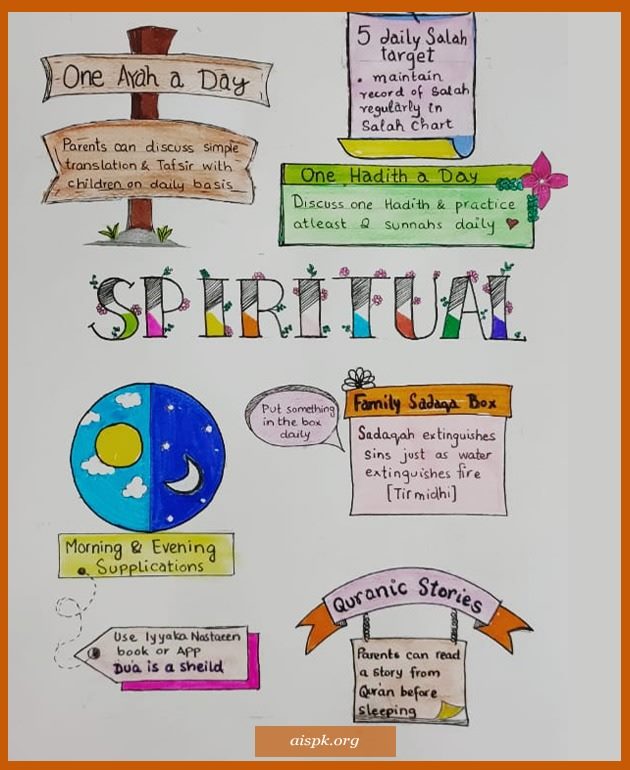 One Ayah a Day
Parents can discuss simple
translation & Tafsir with
children on daily basis
5 daily Salah
target
• maintain
record of Salah
regularly in
Salah Chart
One Hadith a Day
Discuss one Hadith & practice
atleast 2 sunnahs daily
SPIRITUAL
Morning & Evening
Supplications
Use Iyyaka Nastaeen
book or App
Dua is a sheild
Put something
in the box
daily
Family Sadaqa Box
Sadaqah extinguishes
sins just as water
extinguishes fire
[Tirmidhi]
Quranic Stories
Parents can read
a story from
Quran before
sleeping
aispk.org